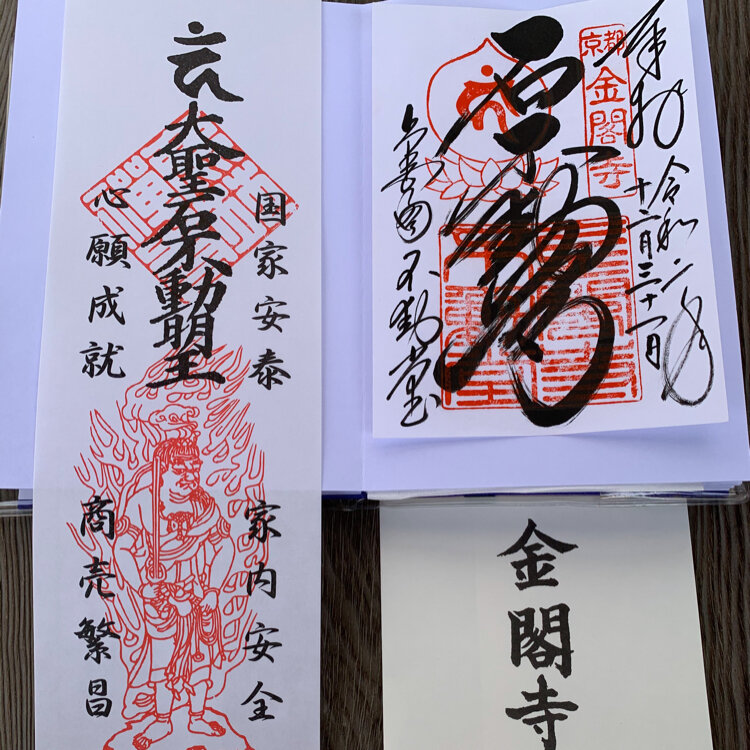 大聖石不動明王
国家安泰
心願成就
家内安全
商売繁昌
奉拝
令和二年
十二月三十一日
京都
金閣寺
石不動
不動堂
金閣寺